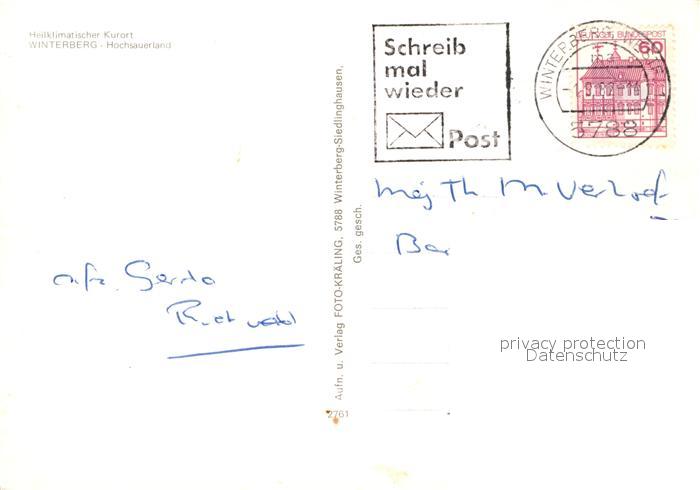 Heilklimatischer Kurort
WINTERBERG - Hochsauerland
Schreib
mal
wieder
Post
DEUTSCHE BUNDESPOST
60
WINTERBERG, WESTF
5788
Aufn. u. Verlag FOTO-KRÄLING, 5788 Winterberg-Siedlinghausen,
Ges. gesch.
2761
Th. M. Verhoef
Bar
afz. Gerda
privacy protection
Datenschutz